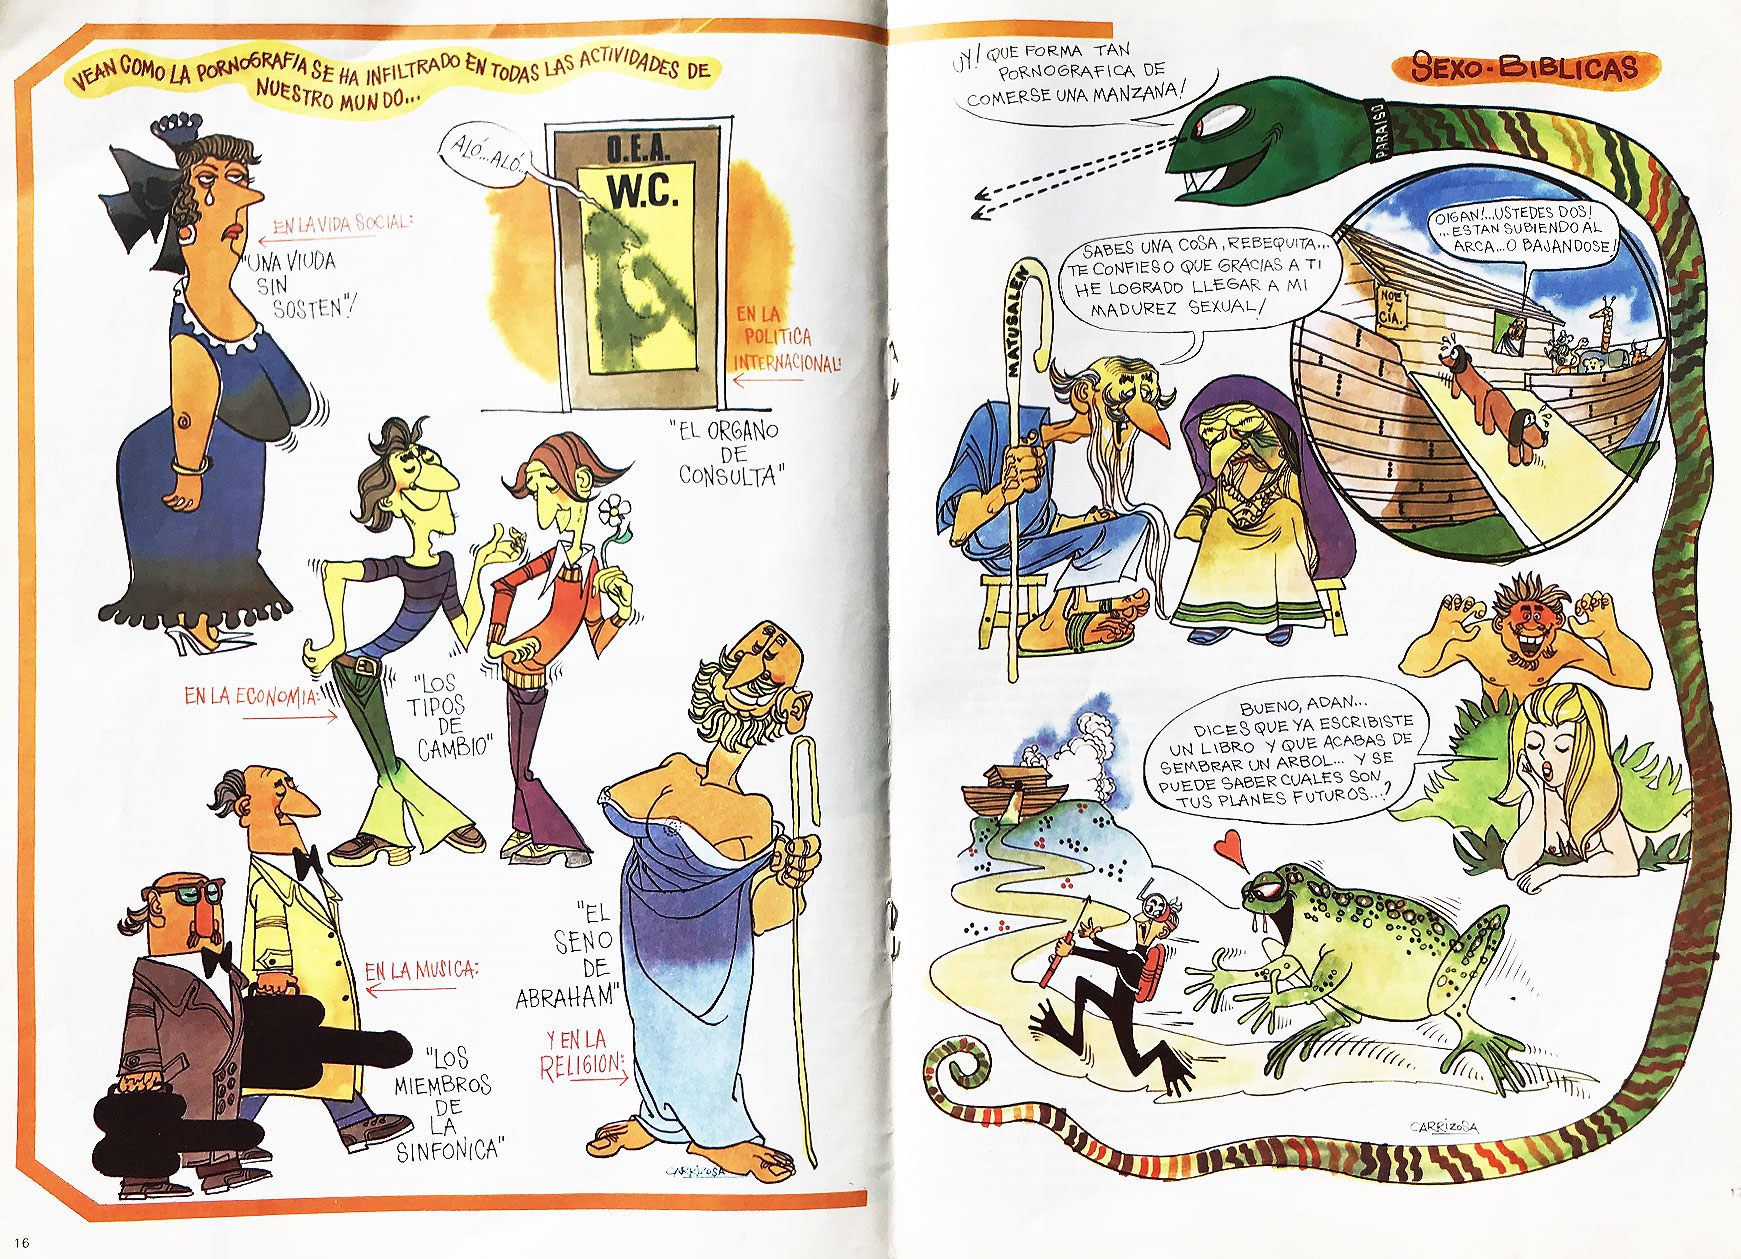 VEAN COMO LA PORNOGRAFIA SE HA INFILTRADO EN TODAS LAS ACTIVIDADES DE
NUESTRO MUNDO...
EN LA VIDA SOCIAL:
"UNA VIUDA
SIN
SOSTEN"!
ALÓ...ALÓ..
O.E.A.
W.C.
EN LA
POLITICA
INTERNACIONAL:
"EL ORGANO
DE
CONSULTA"
EN LA ECONOMIA:
"LOS
TIPOS
DE
CAMBIO"
EN LA MUSICA:
"LOS
MIEMBROS
DE
LA
SINFONICA"
"EL
SENO
DE
ABRAHAM"
Y EN LA
RELIGION:
CARRIZOSA
16
SEXO-BIBLICAS
UY! QUE FORMA TAN
PORNOGRAFICA DE
COMERSE UNA MANZANA!
PARAISO
OIGAN!...USTEDES DOS!
...ESTAN SUBIENDO AL
ARCA...O BAJANDOSE!
NOE
Y
CIA.
SABES UNA COSA, REBEQUITA...
TE CONFIESO QUE GRACIAS A TI
HE LOGRADO LLEGAR A MI
MADUREZ SEXUAL!
MATUSALEN
BUENO, ADAN...
DICES QUE YA ESCRIBISTE
UN LIBRO Y QUE ACABAS DE
SEMBRAR UN ARBOL... Y SE
PUEDE SABER CUALES SON
TUS PLANES FUTUROS...?
CARRIZOSA